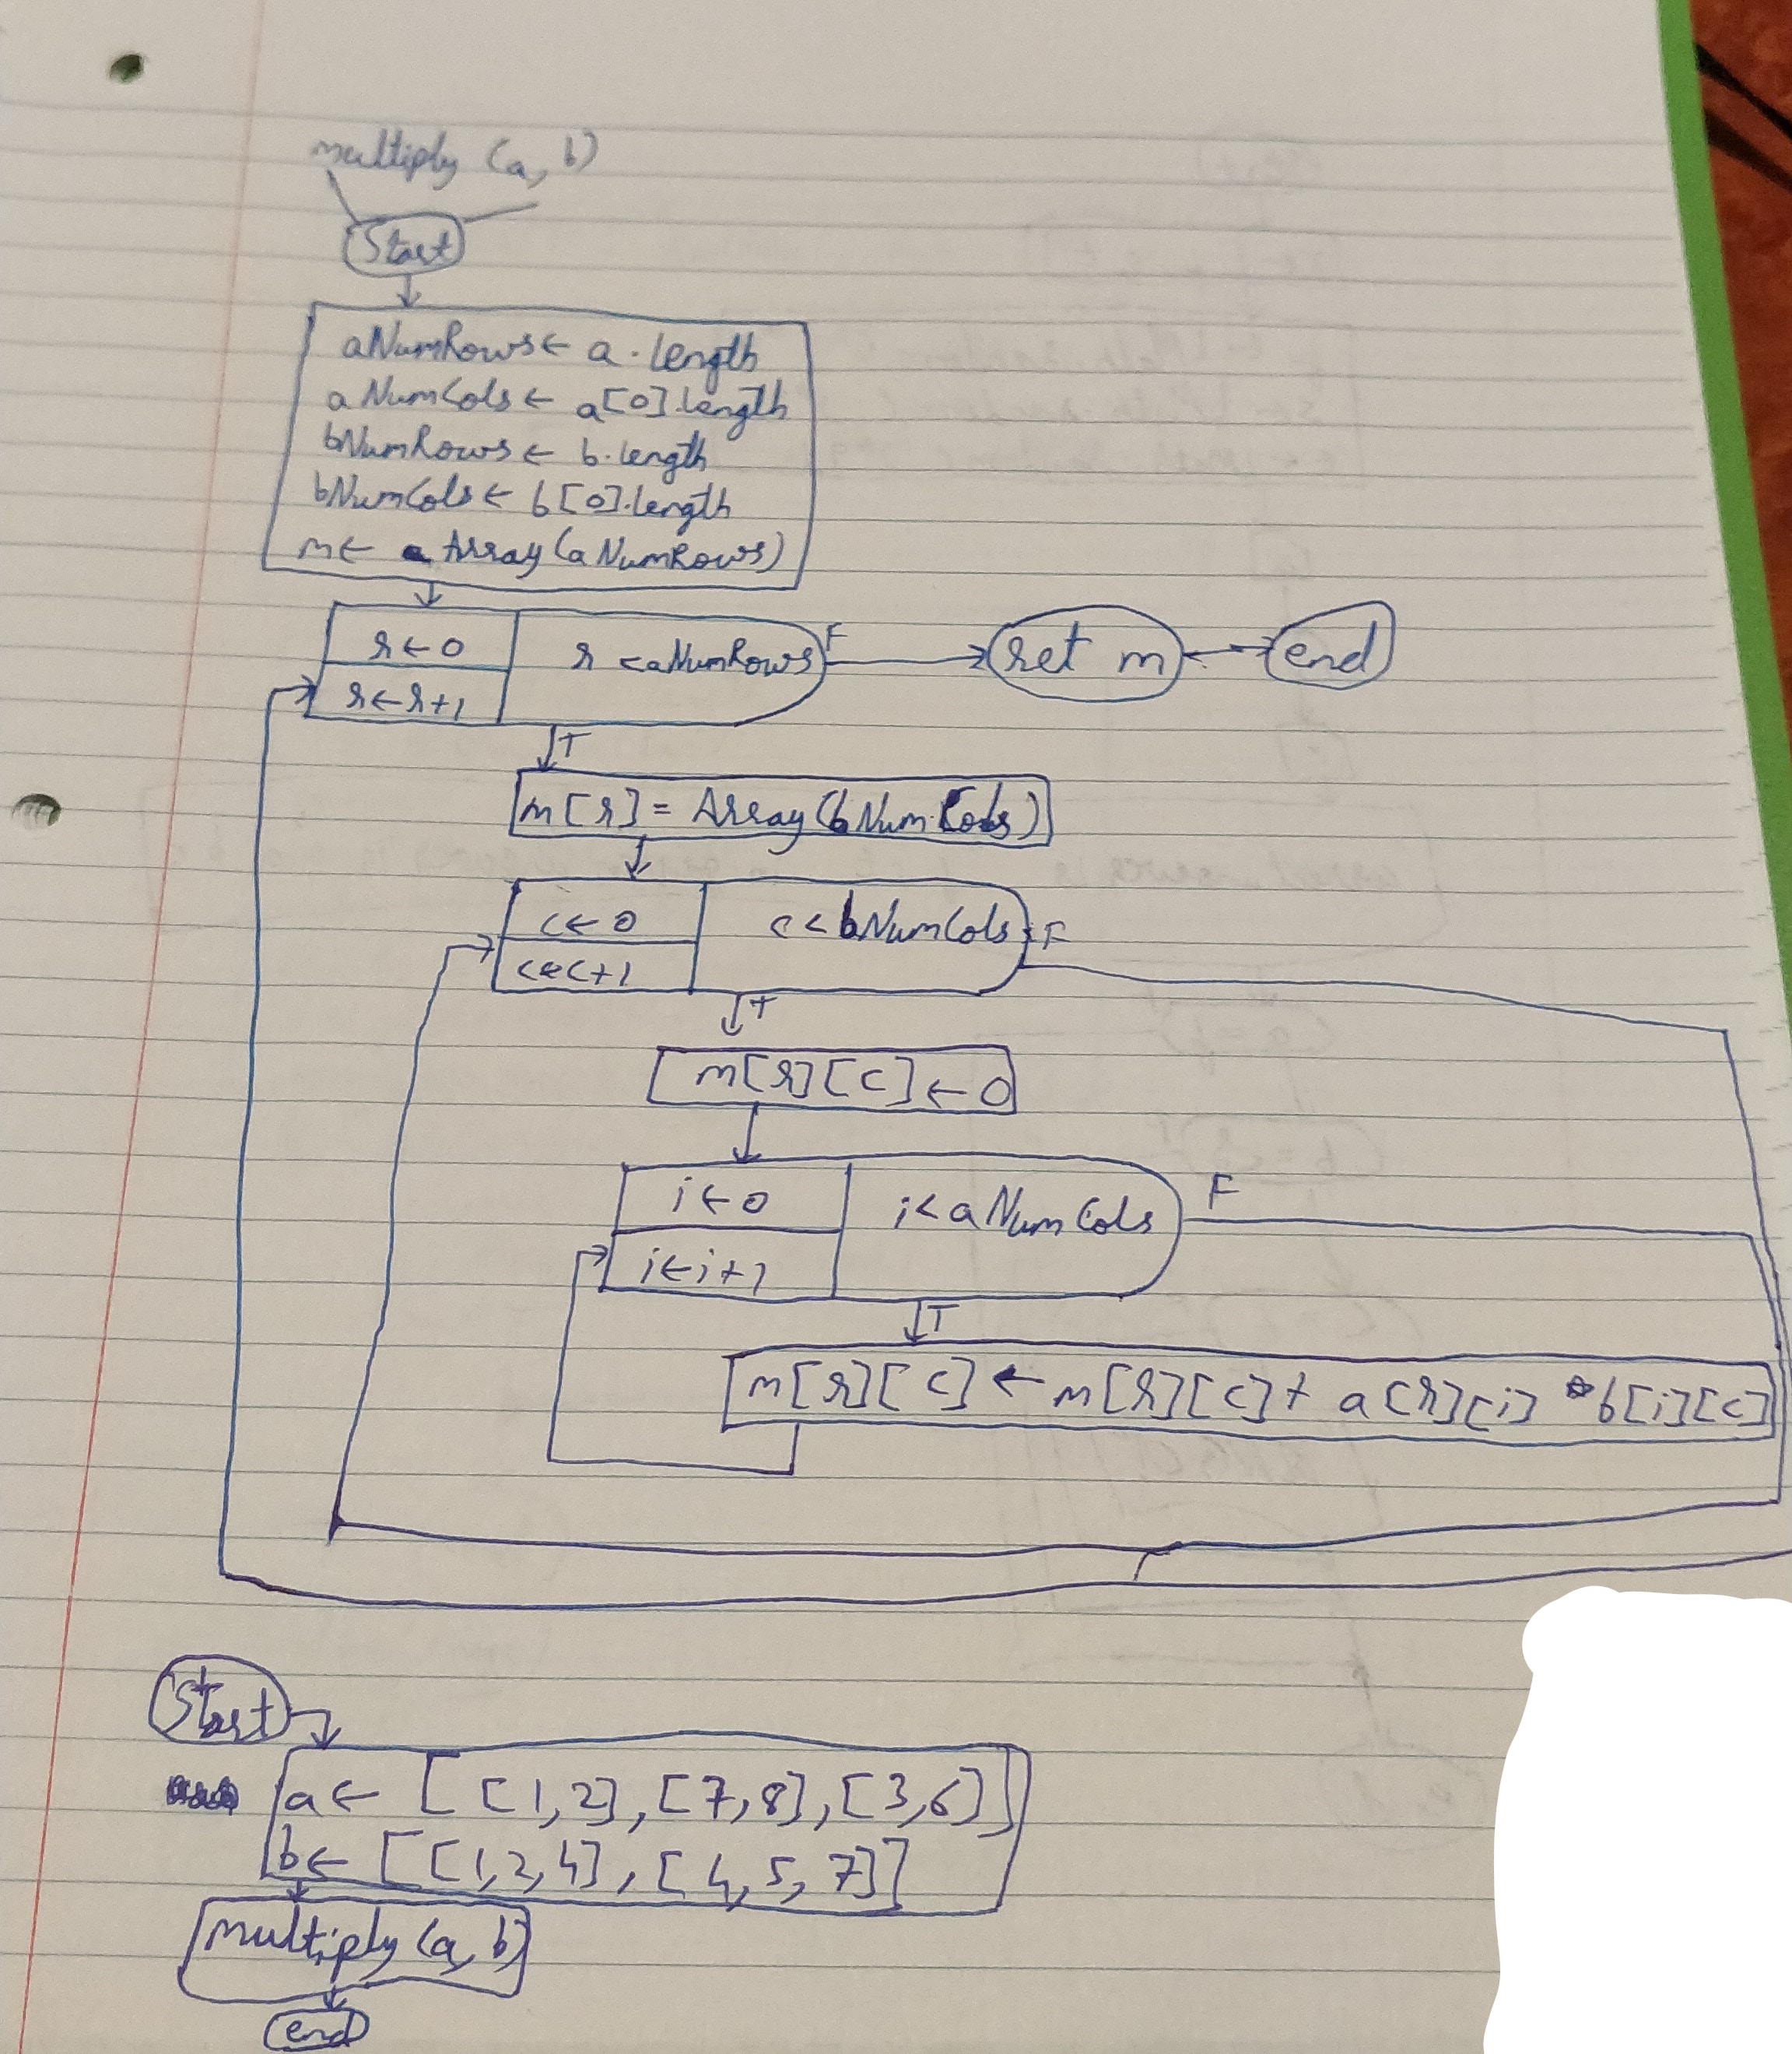 multiply (a, b)
Start
aNumRows ← a.length
aNumCols ← a[0].length
bNumRows ← b.length
bNumCols ← b[0].length
m ← Array(aNumRows)
r ← 0
r < aNumRows
F
ret m
end
r ← r+1
T
m[r] = Array(bNumCols)
c ← 0
c < bNumCols
F
c ← c+1
T
m[r][c] ← 0
i ← 0
i < aNumCols
F
i ← i+1
T
m[r][c] ← m[r][c] + a[r][i] * b[i][c]
Start
a ← [[1,2],[7,8],[3,6]]
b ← [[1,2,4],[4,5,7]]
multiply (a, b)
end